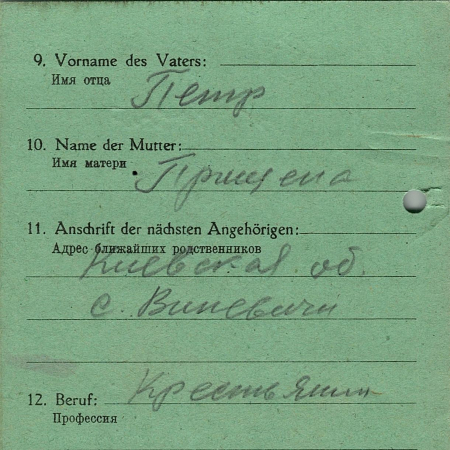 9. Vorname des Vaters:
Имя отца
Петр
10. Name der Mutter:
Имя матери
Прищепа
11. Anschrift der nächsten Angehörigen:
Адрес ближайших родственников
Киевская об.
с. Виневичи
Крестьянин
12. Beruf:
Профессия